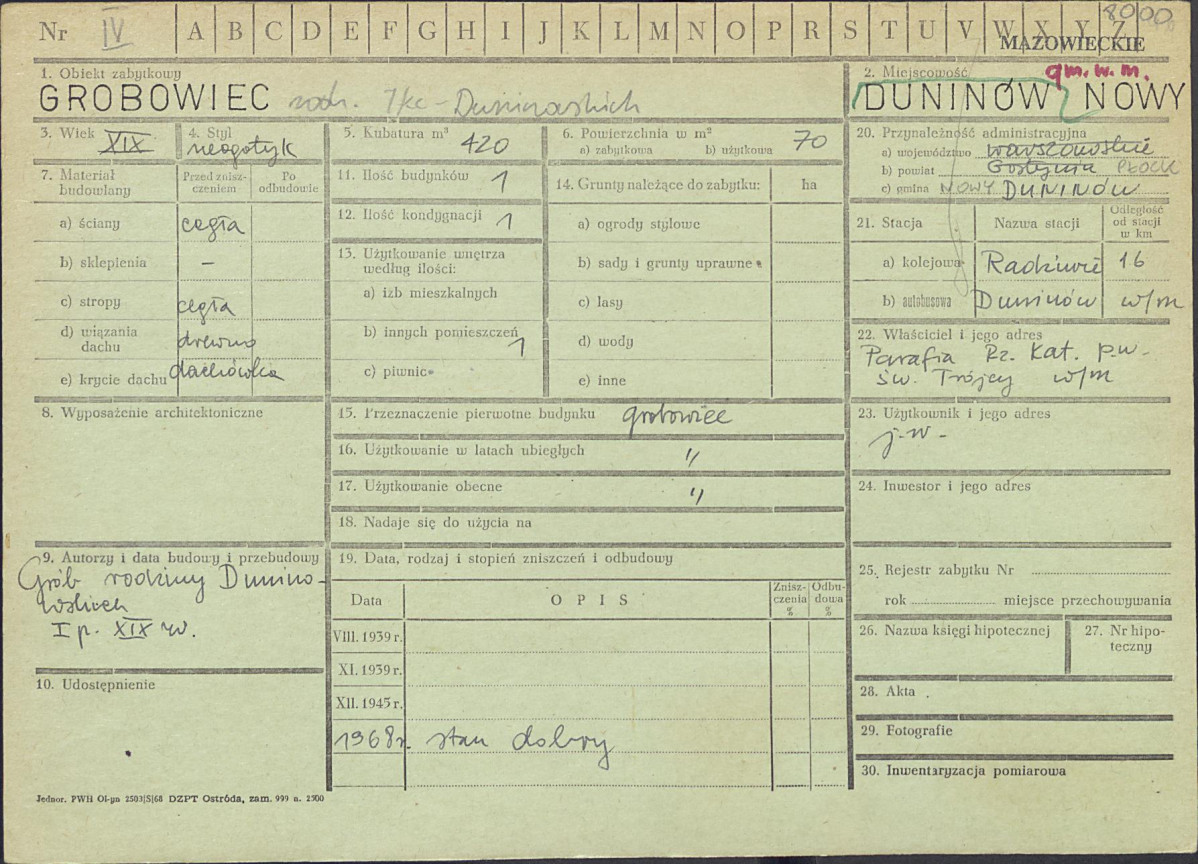 Nr IV A B C D E F G H I J K L M N O P R S T U V W X Y Z 8000
MAZOWIECKIE
1. Obiekt zabytkowy
GROBOWIEC rodz. Ike-Duninowskich
2. Miejscowość gm. w. m.
DUNINÓW NOWY
3. Wiek XIX
4. Styl neogotyk
5. Kubatura m³ 420
6. Powierzchnia w m²
a) zabytkowa b) użytkowa 70
7. Materiał budowlany
Przed zniszczeniem
Po odbudowie
a) ściany cegła
b) sklepienia —
c) stropy cegła
d) wiązania dachu drewno
e) krycie dachu dachówka
8. Wyposażenie architektoniczne
9. Autorzy i data budowy i przebudowy
Grób rodziny Dunino-
wskich
I p. XIX w.
10. Udostępnienie
11. Ilość budynków 1
12. Ilość kondygnacji 1
13. Użytkowanie wnętrza
według ilości:
a) izb mieszkalnych
b) innych pomieszczeń 1
c) piwnic
14. Grunty należące do zabytku: ha
a) ogrody stylowe
b) sady i grunty uprawne
c) lasy
d) wody
e) inne
15. Przeznaczenie pierwotne budynku grobowiec
16. Użytkowanie w latach ubiegłych "
17. Użytkowanie obecne "
18. Nadaje się do użycia na
19. Data, rodzaj i stopień zniszczeń i odbudowy
Data OPIS Znisz-czenia % Odbu-dowa %
VIII. 1939 r.
XI. 1939 r.
XII. 1945 r.
1968 r. stan dobry
20. Przynależność administracyjna
a) województwo warszawskie
b) powiat Gostynin PŁOCK
c) gmina NOWY DUNINÓW
21. Stacja Nazwa stacji Odległość od stacji w km
a) kolejowa Radziwie 16
b) autobusowa Duninów w/m
22. Właściciel i jego adres
Parafia Rz. Kat. p.w.
św. Trójcy w/m
23. Użytkownik i jego adres
j.w-
24. Inwestor i jego adres
25. Rejestr zabytku Nr
rok miejsce przechowywania
26. Nazwa księgi hipotecznej
27. Nr hipo-
teczny
28. Akta
29. Fotografie
30. Inwentaryzacja pomiarowa
Jednor. PWH Ol-yn 2503|S|68 DZPT Ostróda, zam. 999 n. 2500